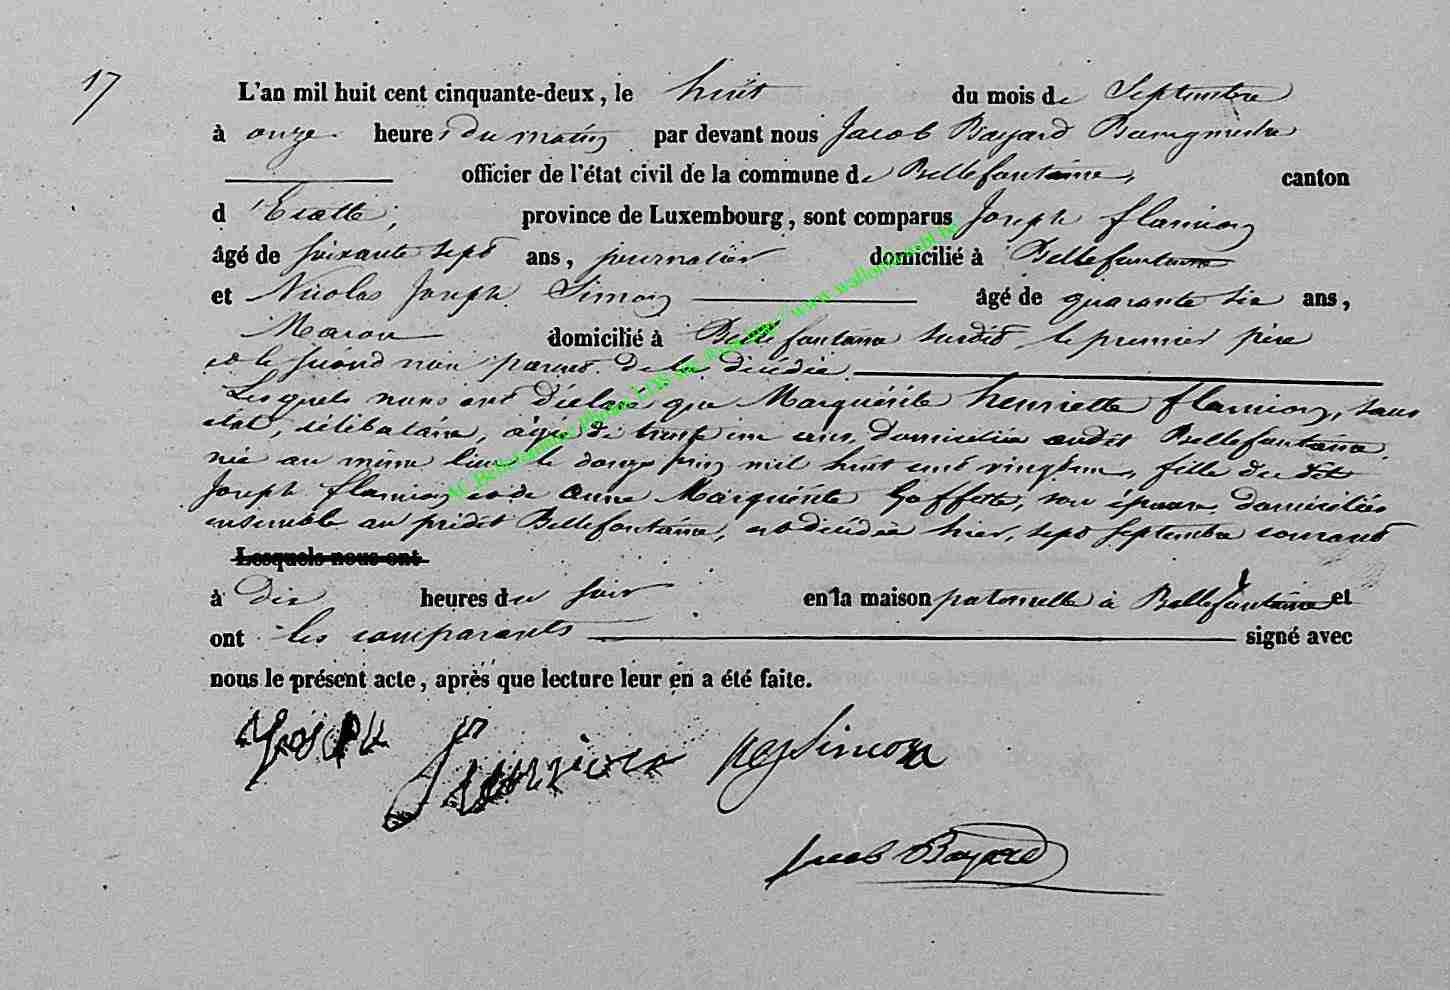 17
L'an mil huit cent cinquante-deux, le huit du mois de Septembre
à onze heures du matin par devant nous Jacob Bayard Bourgmestre
officier de l'état civil de la commune de Bellefontaine, canton
d'Etalle, province de Luxembourg, sont comparus Joseph flamion
âgé de soixante sept ans, journalier domicilié à Bellefontaine
et Nicolas Joseph Simon âgé de quarante six ans,
Maçon domicilié à Bellefontaine susdit, le premier père
et le second non parent de la décédée.
Lesquels nous ont déclaré que Marguérite henriette flamion, sans
état, célibataire, âgée de trente un ans, domiciliée audit Bellefontaine,
née au même lieu le douze juin mil huit cent vingt un, fille du dit
Joseph flamion et de Anne Marguérite Goffette, son épouse, domiciliés
ensemble au prédit Bellefontaine, est décédée hier, sept Septembre courant
Lesquels nous ont
à dix heures du soir en la maison paternelle à Bellefontaine et
ont les comparants signé avec
nous le présent acte, après que lecture leur en a été faite.
Joseph flamion Simon
Jacob Bayard
www.